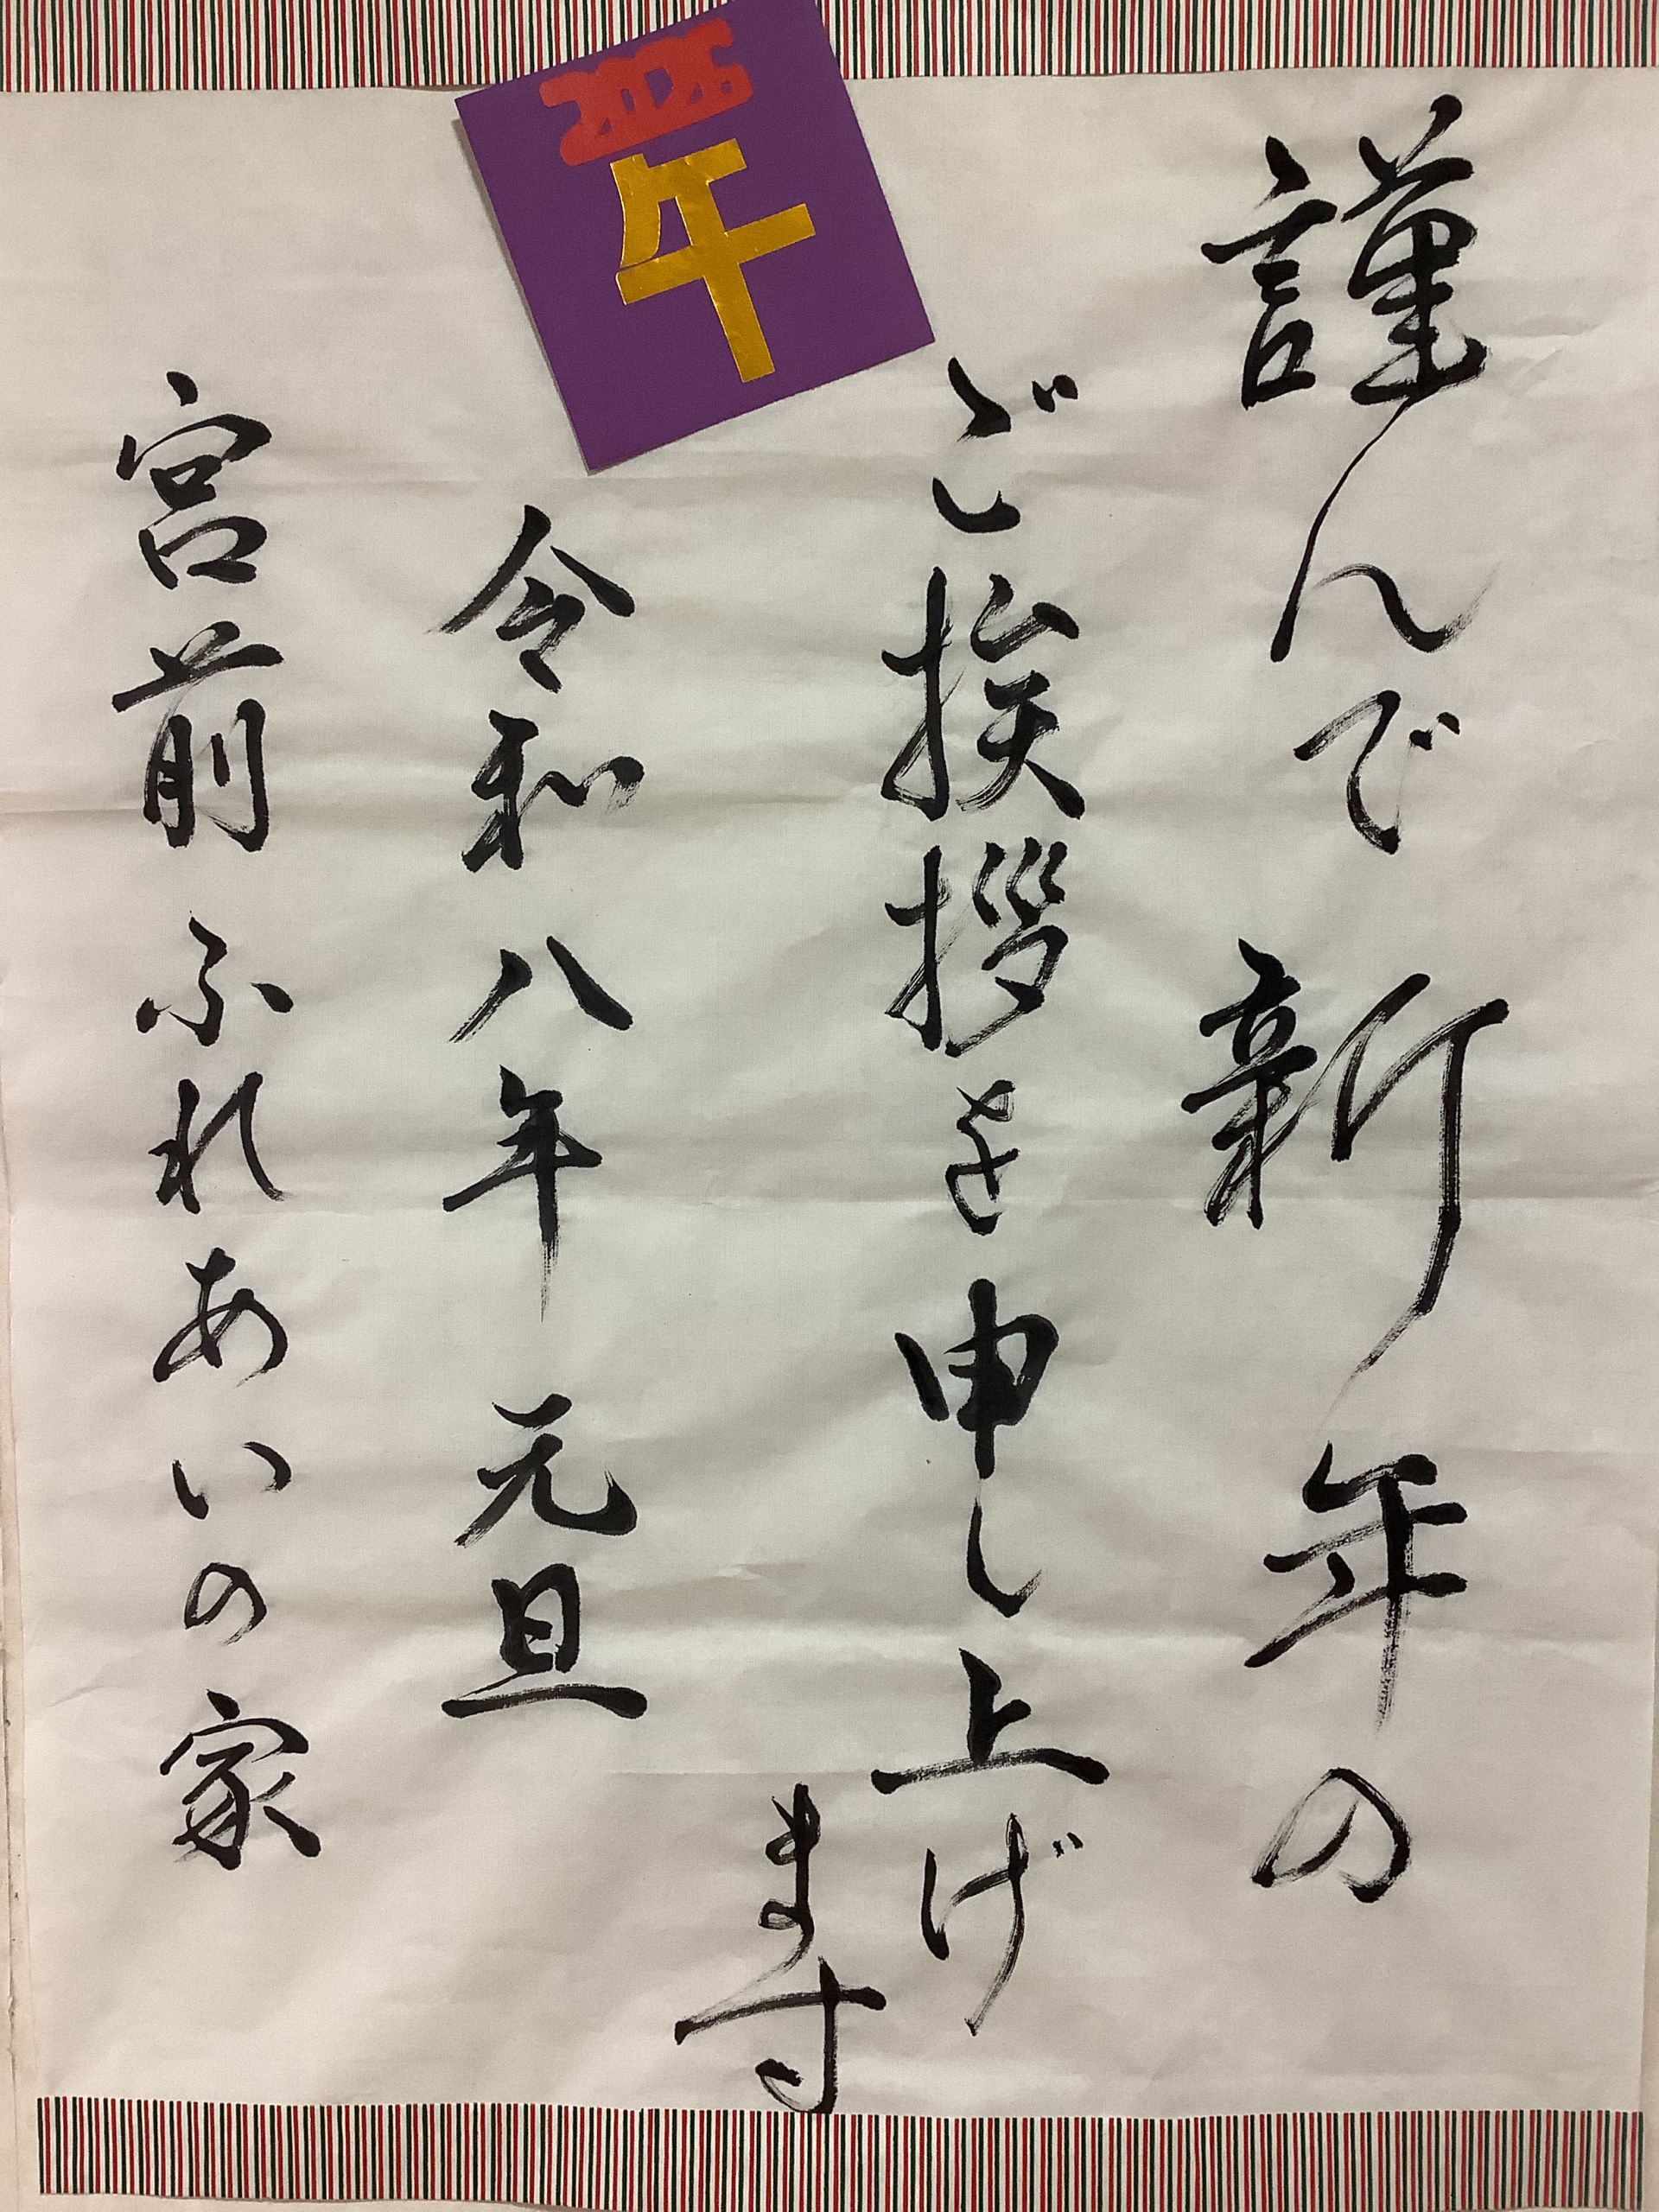 謹んで 新年の
ご挨拶を申し上げ
ます
2026
午
令和八年 元旦
宮前ふれあいの家